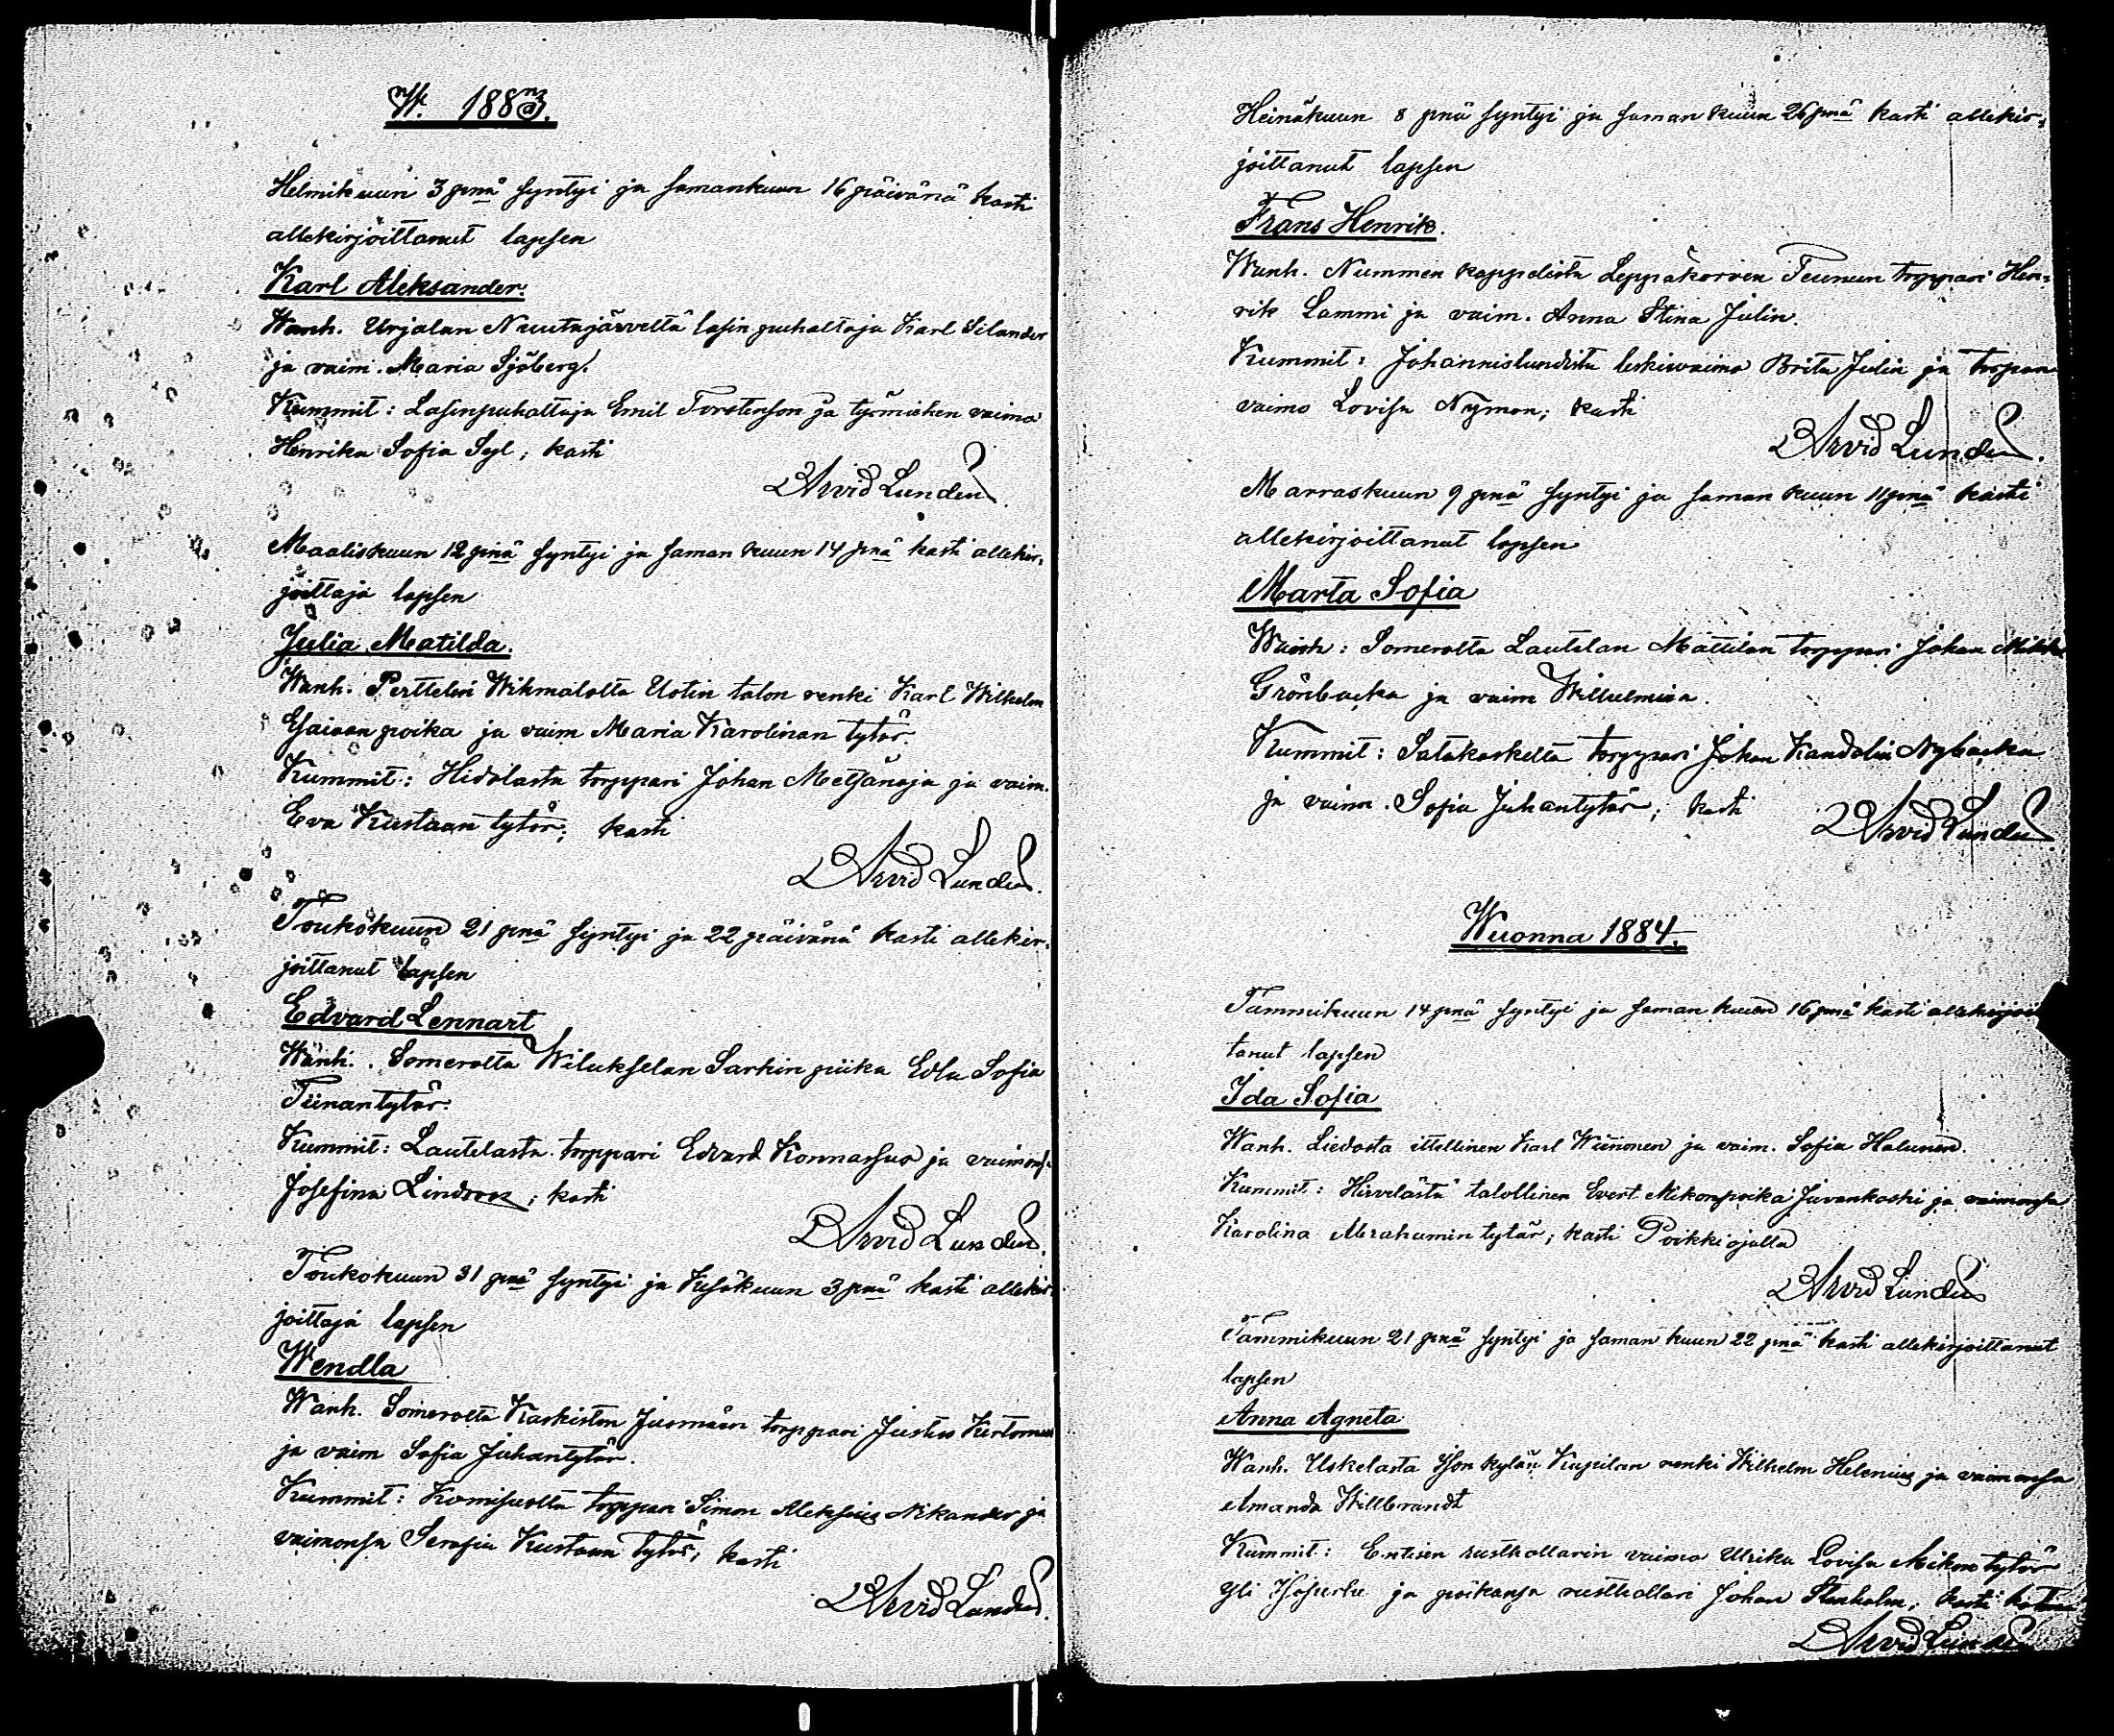 W. 1883.
Helmikuun 3 pnä syntyi ja samankuun 16 päivänä kasti
allekirjoittanut lapsen
Karl Aleksander.
Wanh. Urjalan Nuutajärveltä lasin puhaltaja Karl Silander
ja vaim. Maria Sjöberg.
Kummit: Lasinpuhaltaja Emil Torstenson ja työmiehen vaimo
Henrika Sofia Syl; kasti
Arvid Lunden.
Maaliskuun 12 pnä syntyi ja saman kuun 14 pnä kasti allekir=
joittaja lapsen
Julia Matilda.
Wanh. Perttelin Wihmalolta Uotin talon renki Karl Wilhelm
Esaian poika ja vaim Maria Karolinan tytär.
Kummit: Hidolasta torppari Johan Metsänoja ja vaim.
Eva Kustaan tytär; kasti
Arvid Lunden.
Toukokuun 21 pnä syntyi ja 22 päivänä kasti allekir=
joittanut lapsen
Edvard Lennart
Wanh. Somerolta Wilukselan Sarkin piika Edla Sofia
Tiinantytär.
Kummit: Lautelasta torppari Edvard Konnarsuo ja vaimonsa
Josefina; kasti
Arvid Lunden.
Toukokuun 31 pnä syntyi ja Kesäkuun 3 pnä kasti allekir=
joittaja lapsen
Wendla
Wanh. Somerolta Kaskiston Juomäen torppari Justus
ja vaim Sofia Juhantytär.
Kummit: Komisuolta torppari Simon Aleksius Nikander ja
vaimonsa Serafia Kustaan tytär; kasti
Arvid Lunden.
Heinäkuun 8 pnä syntyi ja saman kuun 26 pnä kasti allekir=
joittanut lapsen
Frans Henrik.
Wanh. Nummen kappelista Leppäkorven Teunun torppari Hen=
rik Lammi ja vaim. Anna Stina Julin.
Kummit: Johannislundista leskivaimo Brita Julin ja torpan
vaimo Lovisa Nyman; kasti
Arvid Lunden.
Marraskuun 9 pnä syntyi ja saman kuun 11 pnä kasti
allekirjoittanut lapsen
Marta Sofia
Wanh: Somerolta Lautelan Mattilan torppari Johan
Grönbacka ja vaim Wilhelmina.
Kummit: Satakoskelta torppari Johan Kandolin Nybacka
ja vaim. Sofia Juhantytär; kasti
Arvid Lunden.
Wuonna 1884.
Tammikuun 14 pnä syntyi ja saman kuun 16 pnä kasti allekirjoit
tanut lapsen
Ida Sofia
Wanh. Liedosta ittellinen Karl ja vaim. Sofia
Kummit: Hirvelästä talollinen Evert Mikonpoika Juvankoski ja vaimonsa
Karolina Abrahamin tytär; kasti Poikkiojalla
Arvid Lunden
Tammikuun 21 pnä syntyi ja saman kuun 22 pnä kasti allekirjoittanut
lapsen
Anna Agneta
Wanh. Uskelasta Ison kylän renki Wilhelm Helenius ja vaimonsa
Amanda Willbrandt
Kummit: Entisen rusthollarin vaimo Ulrika Lovisa Mikon tytär
Yli ja poikansa rusthollari Johan Stenholm; kasti
Arvid Lunden